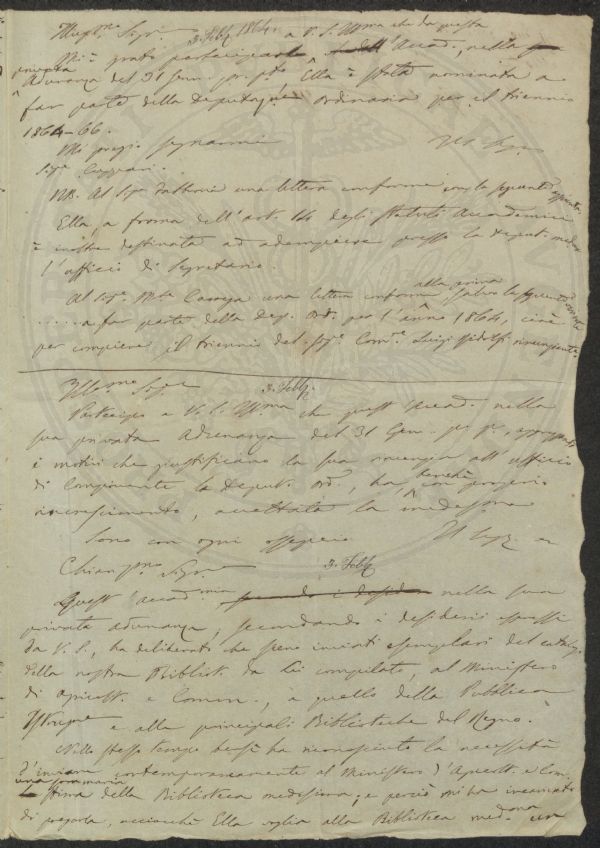 Illust.mo Sig.r 3. Febb. 1864.
Mi è grato partecipare a V. S. Ill.ma che da questa Accad., nella
privata Adunanza del 31 Genn. pr. p.to Ella è stata nominata a
far parte della Deputaz.e ordinaria per il triennio
1864-66.
Mi pregio segnarmi Il Seg.
Sig.r
NB. Al Sig.r una lettera conforme con la seguente aggiunta
Ella, a forma dell'art. 14 degli Statuti Accademici
è inoltre destinata ad adempiere presso la Deput. med.ma
l'ufficio di Segretario.
Al Sig.r M.se Carega una lettera conforme alla prima salvo la seguente
.....a far parte della Dep. Ord. per l'anno 1864, cioè
per compiere il triennio del Sig.r Com.re Luigi Ridolfi rinunziante.
Ill.mo Sig.re 3. Febb.
Partecipo a V. S. Ill.ma che quest'Accad. nella
sua privata Adunanza del 31 Gen. p. p.,
i motivi che giustificano la sua renunzia all'ufficio
di componente la Deput. Ord., ha, benchè con proprio
rincrescimento, accettata la medesima
Sono con ogni ossequio Il Seg.
Chiariss.mo Sig.re 3. Febb.
Quest'Accademia nella sua
privata adunanza, secondando i desiderii espressi
da V. S., ha deliberato che sieno inviati esemplari del catalogo
della nostra Bibliot. da Lei compilato, al Ministero
di Agricolt. e Comm., a quello della Pubblica
Istruz.ne e alle principali Biblioteche del Regno.
Nello stesso tempo però ha riconosciuto la necessità
d'inviare contemporaneamente al Ministero d'Agricolt. e Com.
una sommaria stima della Biblioteca medesima; e perciò mi ha incaricato
di pregarla, acciocchè Ella voglia alla Biblioteca med.ma